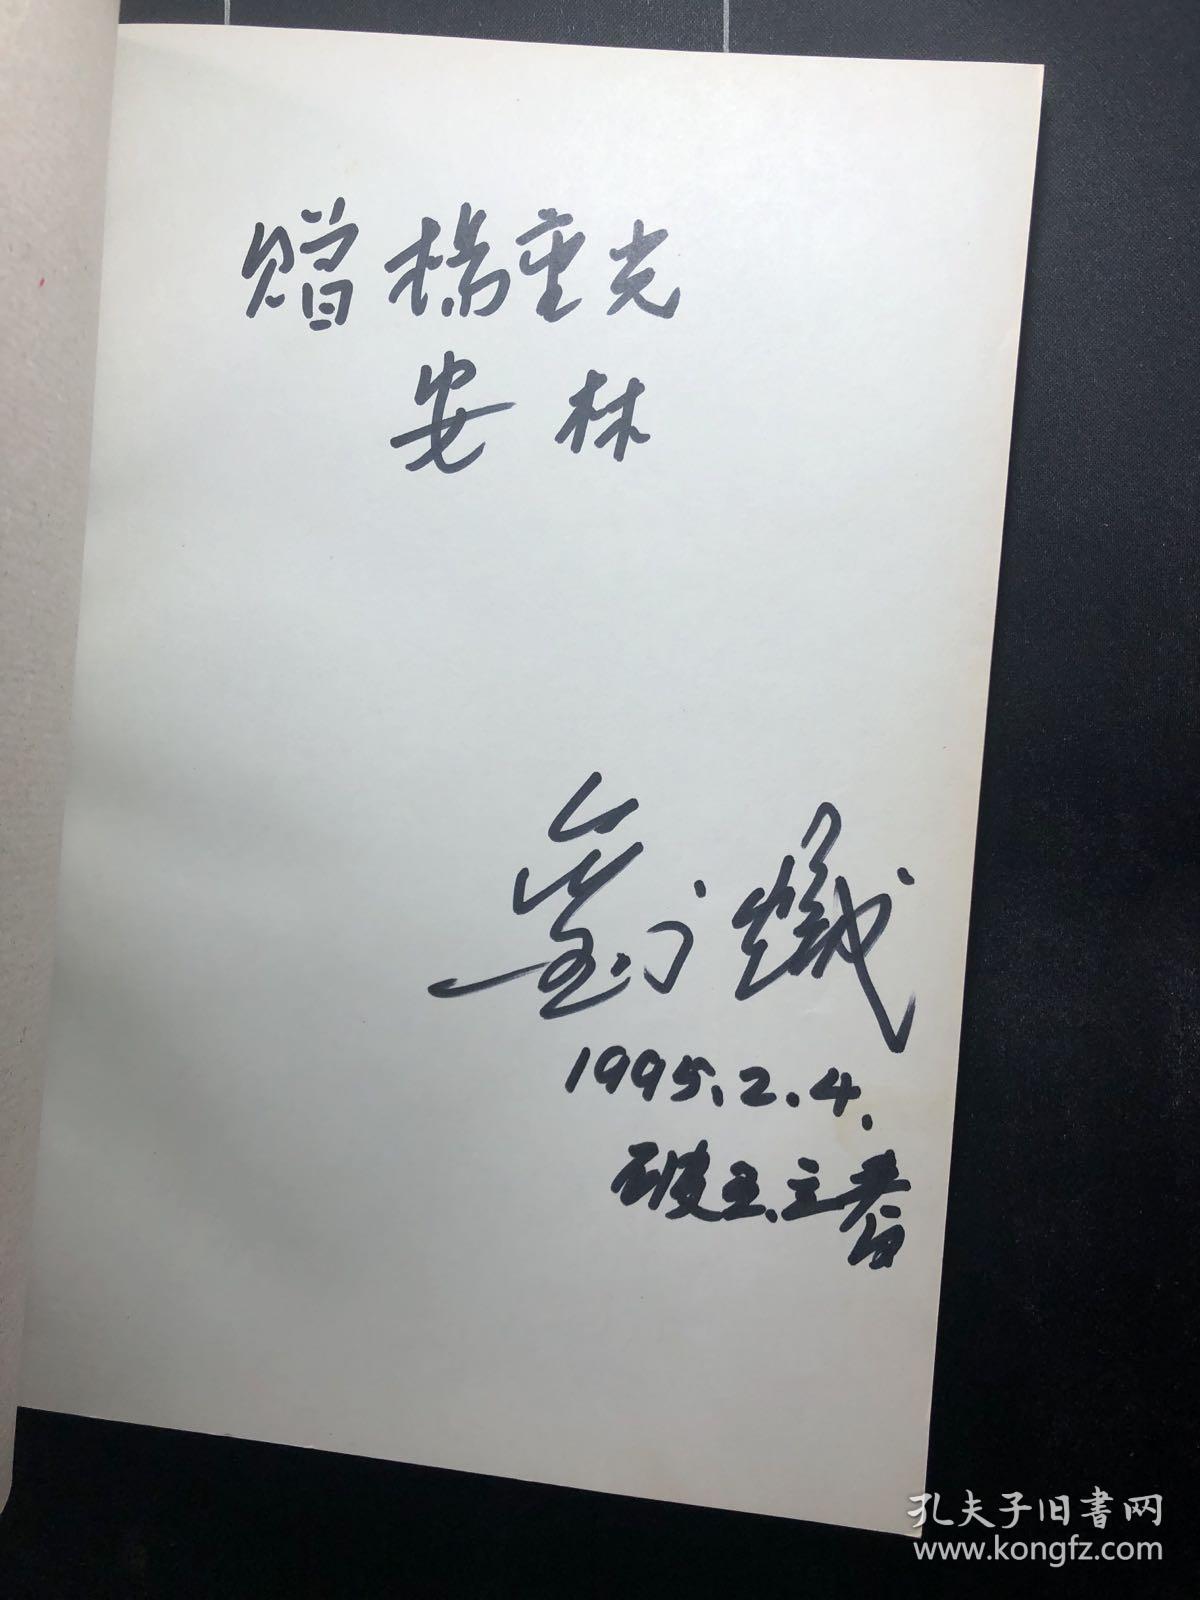 赠 楊重光
安林
劉熾
1995.2.4.
破五、立春
孔夫子旧書网
www.kongfz.com